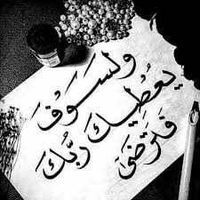 ولسوف
يعطيك ربك
فترضى